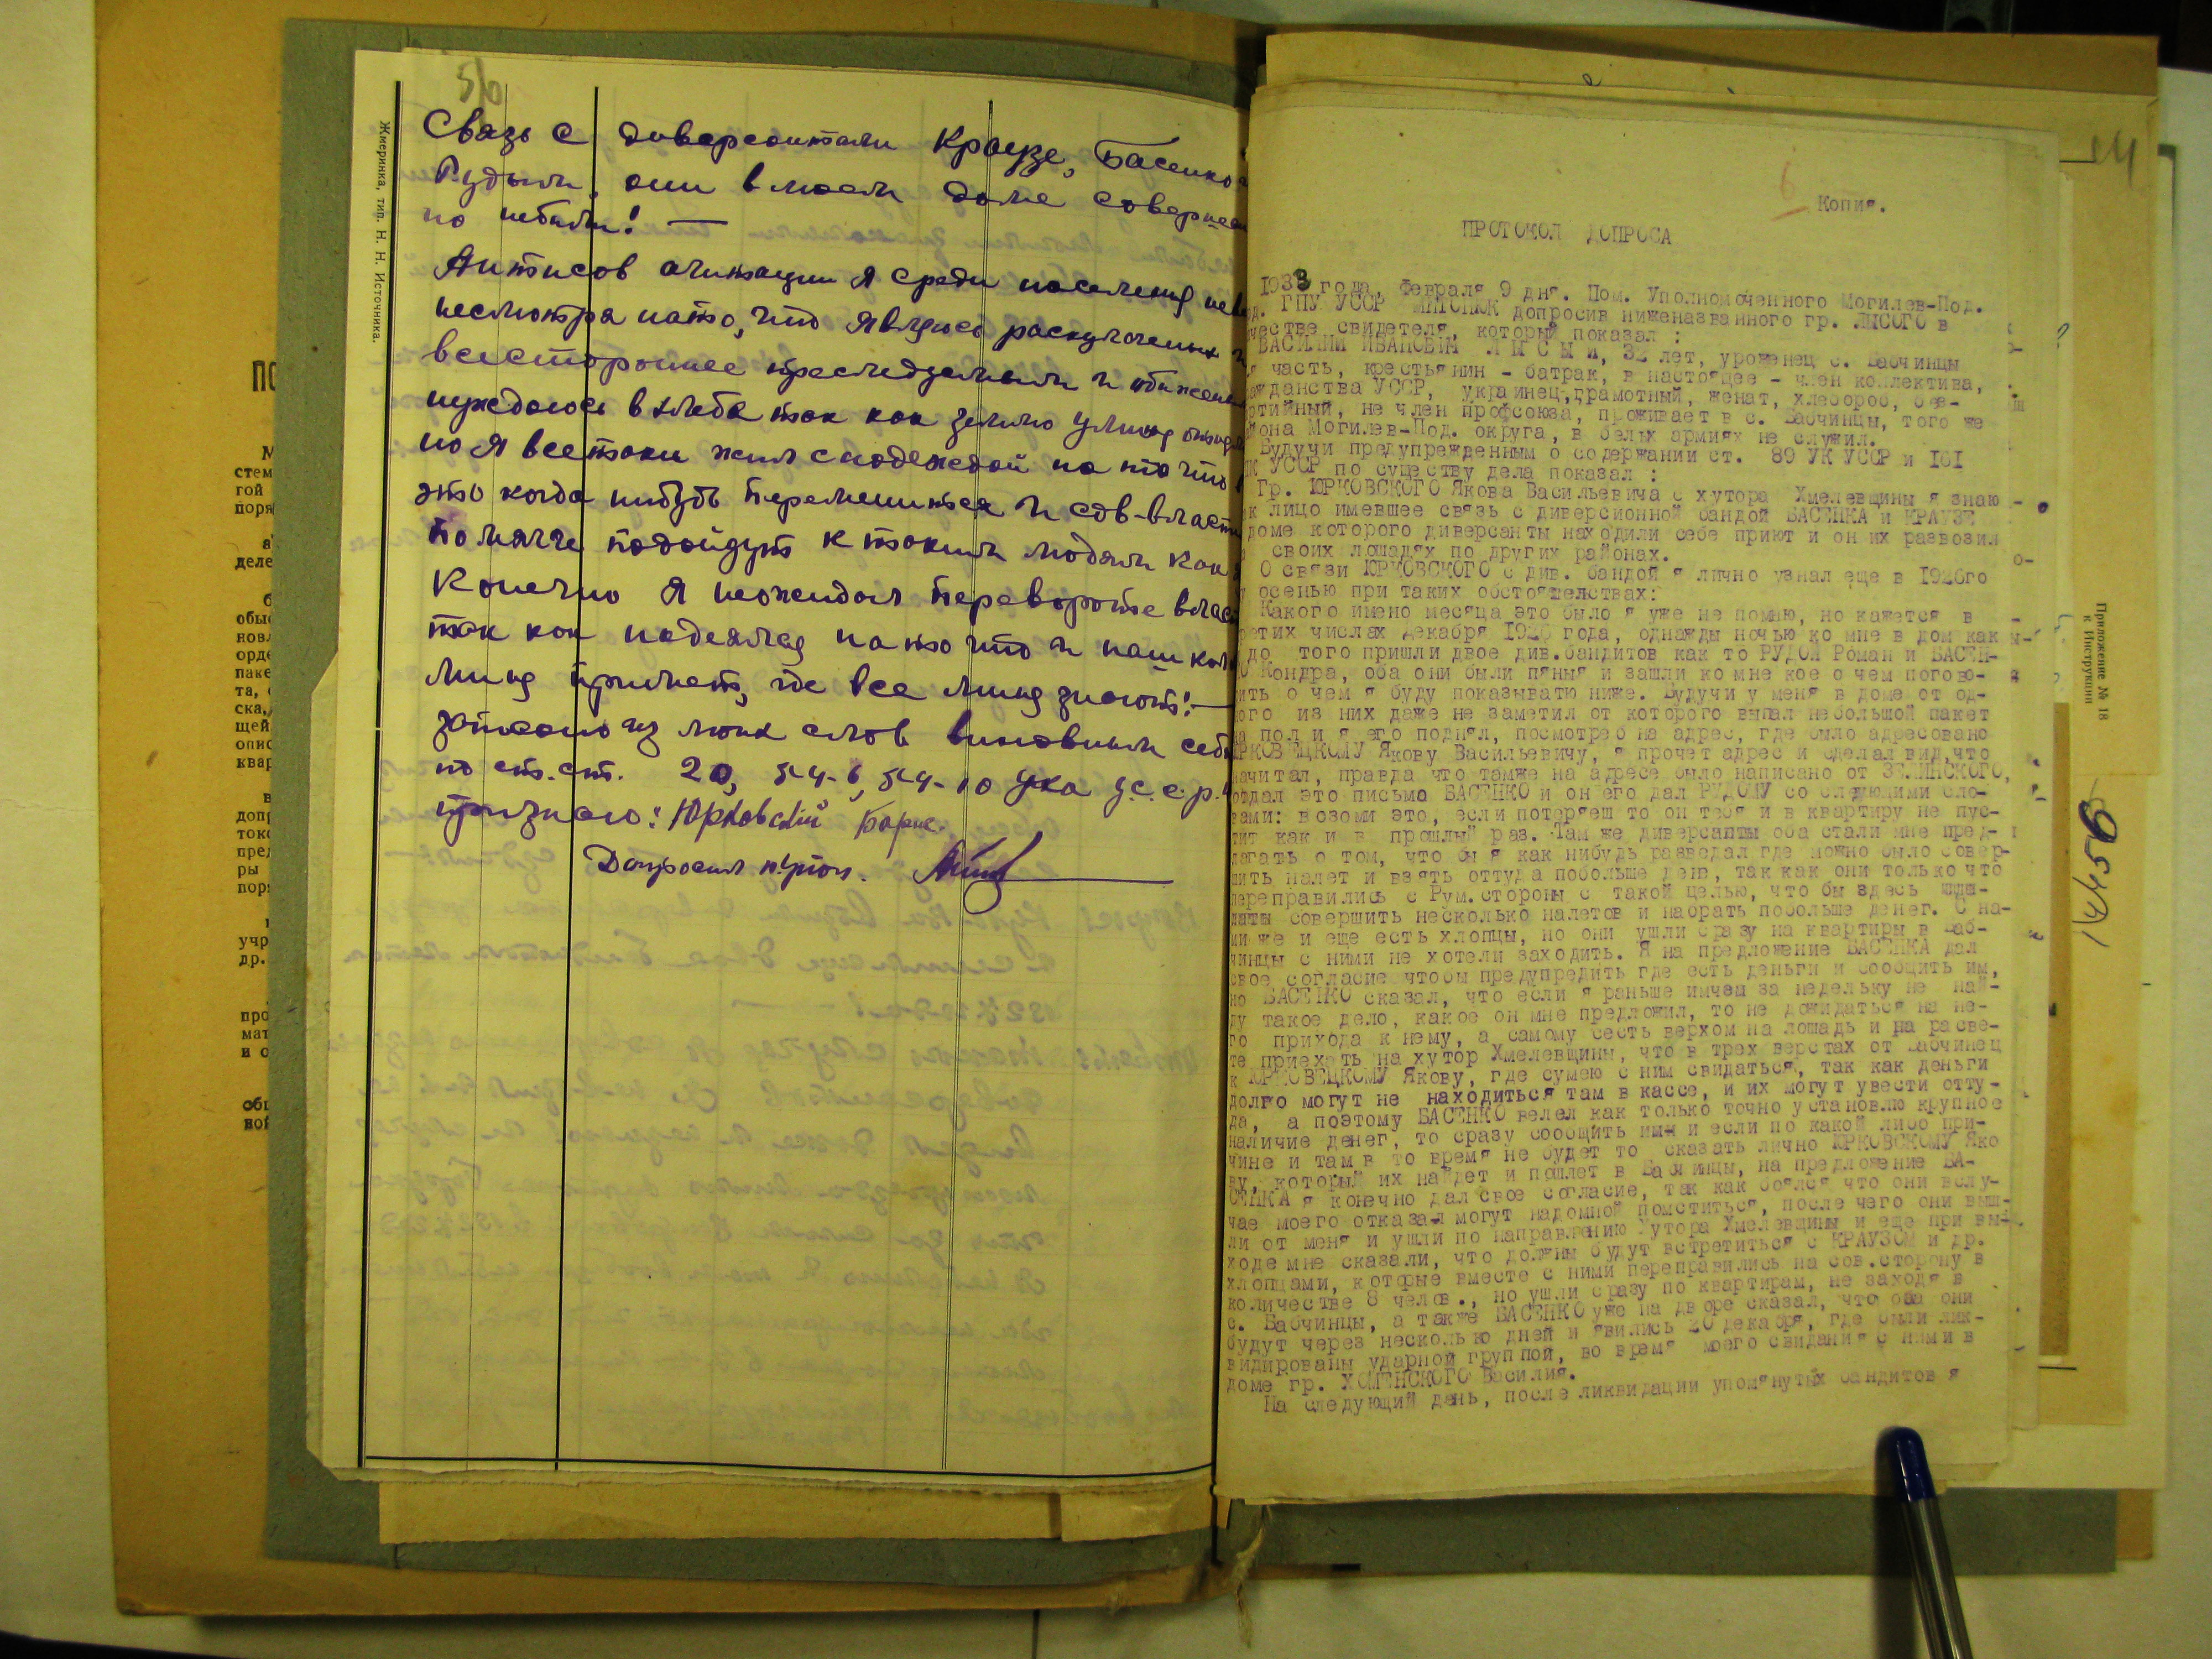 5/6
Связь с диверсантами Краузе, Басенко
Рудым, они в моем доме совершен
но небыли!
Антисов агитации я среди населения не
несмотря нато, что являюсь раскулаченым и
всесторонее преследуемым и обижен
нуждаюсь в хлебе так как землю у меня
но я всетаки жил снадеждой на то что
это когда нибудь переменится и сов-власт
помягче подойдут к таким людям как
Конечно я неожидал переворота влас
так как надеялся на то что и наш кол
меня примет, где все меня знают! —
записано из моих слов виновным себ
по ст.ст. 20, 54-6, 54-10 УКа У.С.С.Р.
признаю: Юрковский
Допросил
Жмеринка, тип. Н. Н. Источника.
ПО
М
стем
гой
поря
а
деле
б
обы
нов
орде
паке
та,
ска,
щей
опис
квар
в
доп
ток
пре
ры
пор
учр
др.
про
мат
и о
обы
вой
14
6
Копия.
ПРОТОКОЛ ДОПРОСА
1933 года, февраля 9 дня. Пом. Уполномоченного Могилев-Под.
д. ГПУ УССР допросив ниженазванного гр. ЛЫСОГО в
честве свидетеля, который показал :
ВАСИЛИЙ ИВАНОВИЧ ЛЫСЫЙ, 32 лет, уроженец с. Бабчинцы
я часть, крестьянин - батрак, в настоящее - член коллектива,
ажданства УССР, украинец, грамотный, женат, хлебороб, бес-
ртийный, не член профсоюза, проживает в с. Бабчинцы, того же
йона Могилев-Под. округа, в белых армиях не служил.
Будучи предупрежденным о содержании ст. 89 УК УССР и 101
ПК УССР по существу дела показал :
Гр. ЮРКОВСКОГО Якова Васильевича с хутора Хмелевщины я знаю -
к лицо имевшее связь с диверсионной бандой БАСЕНКА и КРАУЗЕ
доме которого диверсанты находили себе приют и он их развозил
своих лошадях по других районах.
О связи ЮРКОВСКОГО с див. бандой я лично узнал еще в 1926го
осенью при таких обстоятельствах:
Какого имено месяца это было я уже не помню, но кажется в
ретих числах декабря 1926 года, однажды ночью ко мне в дом как
до того пришли двое див.бандитов как то РУДОЙ Роман и БАСЕН-
О Кондра, оба они были пяныя и зашли ко мне кое о чем погово-
ить о чем я буду показыватю ниже. Будучи у меня в доме от од-
ого из них даже не заметил от которого выпал небольшой пакет
а пол и я его поднял, посмотрев на адрес, где было адресовано
ЮРКОВЕЦКОМУ Якову Васильевичу, я прочет адрес и сделал вид,что
начитал, правда что тамже на адресе было написано от ЗЕЛИНСКОГО,
отдал это письмо БАСЕНКО и он его дал РУДОМУ со следующими сло-
вами: возоми это, если потеряеш то он тебя и в квартиру не пус-
тит как и в прошлый раз. Там же диверсанты оба стали мне пред-
лагать о том, что бы я как нибудь разведал где можно было совер-
шить налет и взять оттуда побольше денв, так как они только что
переправились с Рум.стороны с такой целью, что бы здесь
совершить несколько налетов и набрать побольше денег. С на-
ми же и еще есть хлопцы, но они ушли сразу на квартиры в Баб-
чинцы с ними не хотели заходить. Я на предложение БАСЕНКА дал
свое согласие чтобы предупредить где есть деньги и сообщить им,
но БАСЕНКО сказал, что если я раньше имчем за недельку не най-
ду такое дело, какое он мне предложил, то не дожидаться на не-
го прихода к нему, а самому сесть верхом на лошадь и на расве-
те приехать на хутор Хмелевщины, что в трех верстах от Бабчинец
к ЮРКОВЕЦКОМУ Якову, где сумею с ним свидаться, так как деньги
долго могут не находиться там в кассе, и их могут увести отту-
да, а поэтому БАСЕНКО велел как только точно установлю крупное
наличие денег, то сразу сообщить им и если по какой либо при-
чине и там в то время не будет то сказать лично ЮРКОВСКОМУ Яко
ву, который их найдет и пошлет в Бабчинцы, на предложение БА-
СЕНКА я конечно дал свое согласие, так как боялся что они вслу-
чае моего отказа могут надомной помститься, после чего они выш-
ли от меня и ушли по направлению хутора Хмелевщины и еще при вы-
ходе мне сказали, что должны будут встретиться с КРАУЗОМ и др.
хлопцами, которые вместе с ними переправились на сов.сторону в
количестве 8 челов., но ушли сразу по квартирам, не заходя в
с. Бабчинцы, а также БАСЕНКО уже на дворе сказал, что оба они
будут через несколько дней и явились 20 декабря, где были лик-
видированы ударной группой, во время моего свидания с ними в
доме гр. ХОМЕНСКОГО Василия.
На следующий день, после ликвидации упомянутых бандитов я
Приложение № 18
к Инструкции